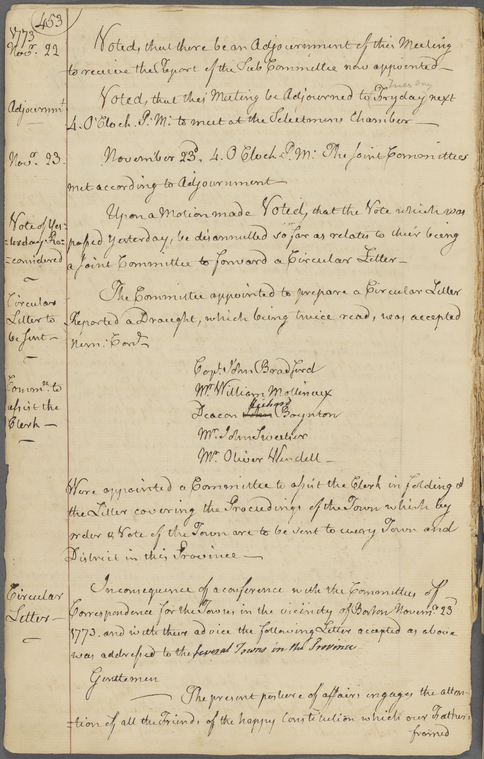 453
1773
Novr. 22
Voted, that there be an Adjournment of this Meeting
to receive the Report of the Sub Committee now appointed—
Tuesday
Adjournmt
Voted, that this Meeting be Adjourned to Fryday next
4. O'Clock P. M: to meet at the Selectmens Chamber—
Novr. 23.
November 23d. 4. O Clock P. M: The Joint Committees
met according to Adjournment
Vote of Yes-
terday Re-
considered
Upon a Motion made Voted, that the Vote which was
passed Yesterday, be disannulled so far as relates to their being
a Joint Committee to forward a Circular Letter—
Circular
Letter to
be sent—
The Committee appointed to prepare a Circular Letter
Reported a Draught, which being twice read, was accepted
Nem: Cont.
Commee. to
assist the
Clerk—
Capt. John Bradford
Mr. William Mollinaux
Richard
Deacon John Boynton
Mr. John Sweetser
Mr. Oliver Wendell—
Were appointed a Committee to assist the Clerk in folding &
the Letter covering the Proceedings of the Town which by
order & Vote of the Town are to be sent to every Town and
District in this Province—
Circular
Letter—
In consequence of a conference with the Committees of
Correspondence for the Towns in the vicinity of Boston Novemr. 23d
1773. and with their advice the following Letter accepted as above
was addressed to the several Towns in the Province
Gentlemen
The present posture of affairs engages the atten-
=tion of all the Friends of the happy Constitution which our Fathers
framed